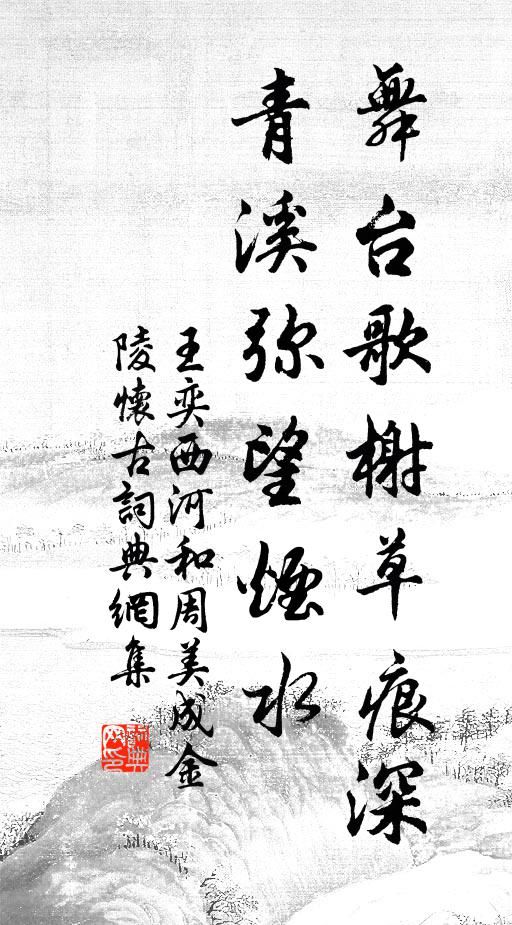 舞台歌榭草痕深
青溪弥望煙水
王奕西河和周美成金
陵懷古詞典網集